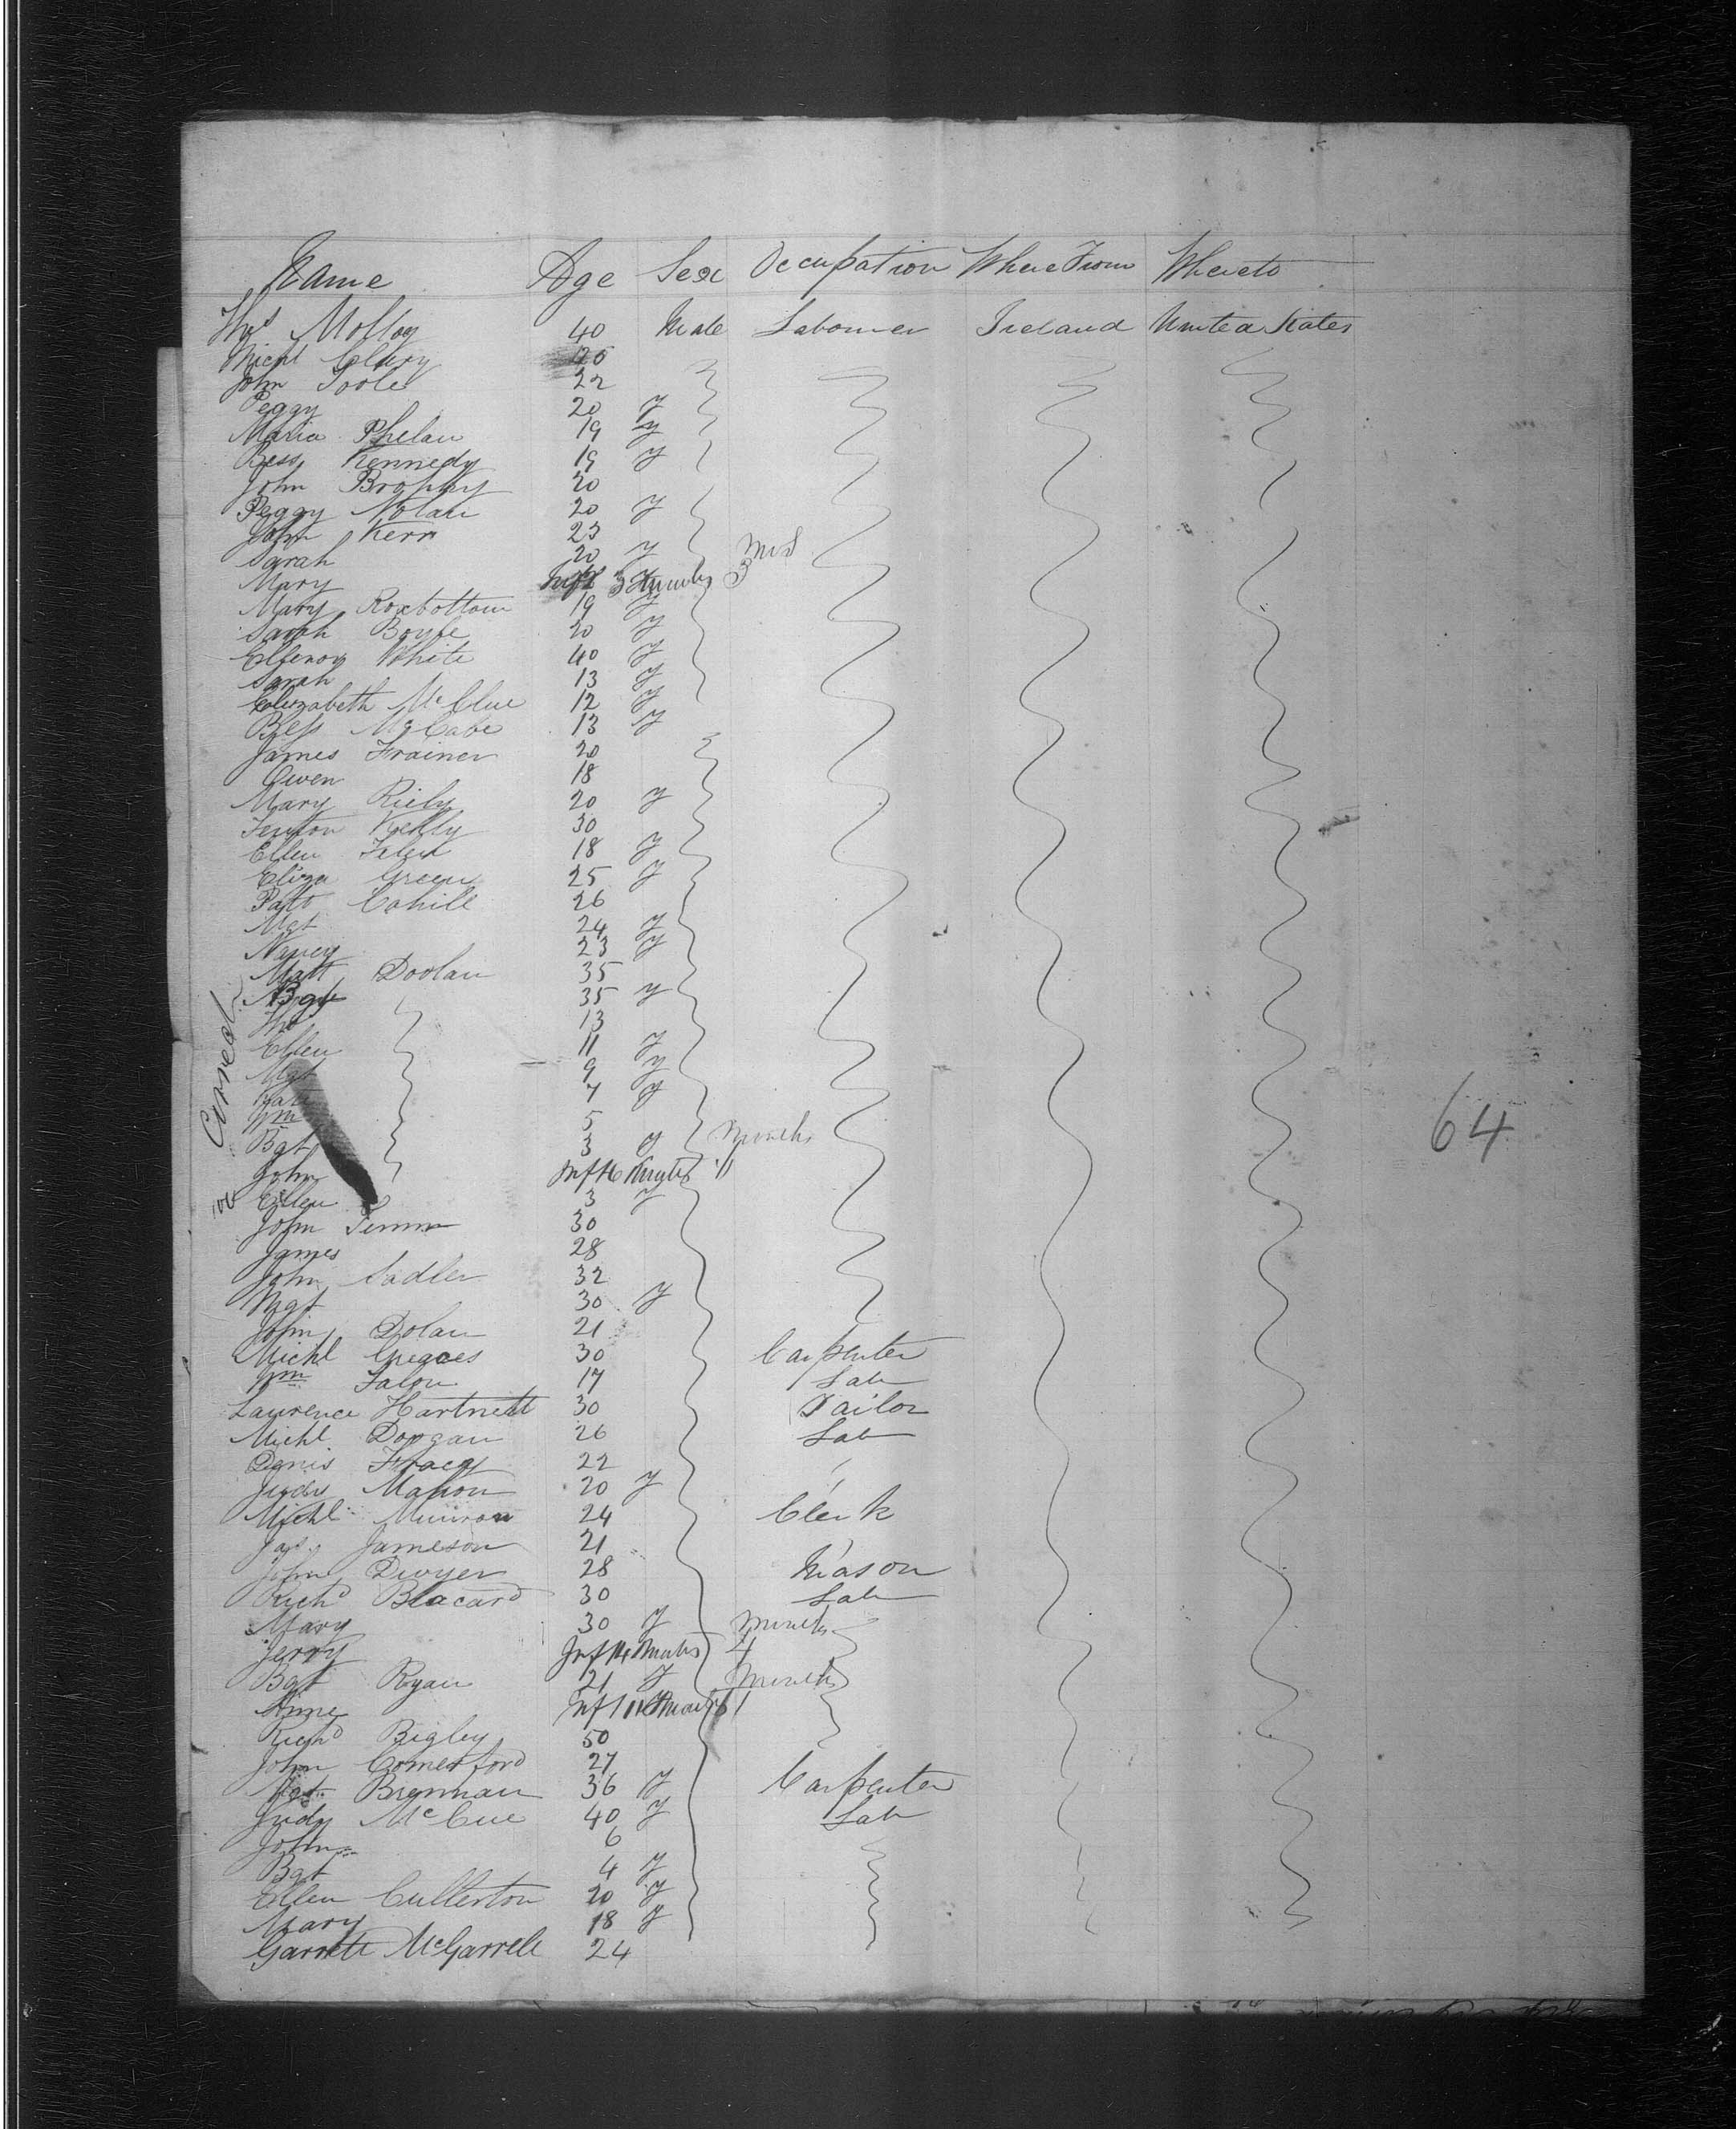 Name Age Sex Occupation Where From Where to
Thos Molloy 40 Male Labourer Ireland United States
Michl Cleary 25
John Toole 22
Peggy 20 f
Maria Phelan 19 f
Bess Kennedy 19 f
John Brophy 20
Peggy Nolan 20 f
John Kerr 23
Sarah 20 f
Mary Inft 3 Months 3
Mary Roxbottom 19 f
Sarah Boyle 20 f
Ellenor White 40 f
Sarah 13 f
Elizabeth McClue 12 f
Bess McCabe 13 f
James Frainer 20
Owen 18
Mary Riely 20 f
Fenton Kelly 30
Ellen 18 f
Eliza Green 25 f
Patt Cahill 26
Mgt 24 f
Nancy 23 f
Matt Doolan 35
Bgt 35 f
Tho 13
Ellen 11 f
Mgt 9 f
Kate 7 f
Wm 5
Bgt 3 f Months
John Inft 6 Months 11
Ellen 3 f
John 30
James 28
John Sadler 32
Mgt 30 f
John Dolan 21
Michl Greaves 30 Carpenter
Wm Falon 17 Lab
Laurence Hartnett 30 Tailor
Michl Dorgan 26 Lab
Denis Tracy 22
Judy Mahon 20 f
Michl 24 Clerk
Jas. Jameson 21
John Dwyer 28 Mason
Richd Blacard 30 Lab
Mary 30 f Months
Jerry Inft 4 Months 4
Bgt Ryan 21 f Months
Anne Inft 11 Months 11
Richd Bigley 50
John Comerford 27
Mgt Brennan 36 f Carpenter
Judy McCue 40 f Lab
John 6
Bgt 4 f
Ellen Cullerton 20 f
Mary 18 f
Garrett McGarrele 24
64